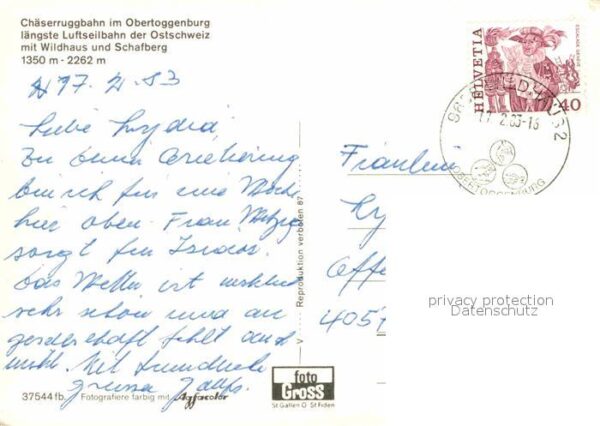 Chäserruggbahn im Obertoggenburg
längste Luftseilbahn der Ostschweiz
mit Wildhaus und Schafberg
1350 m - 2262 m
17. 2. 83
Liebe Lydia,
Zu Deiner Orientierung
bin ich für eine Woche
hier oben. Frau
sorgt für
Das Wetter ist wirklich
sehr schön und an
Gesellschaft fehlt auch
nicht. Mit freundliche
Grüsse
37544 fb. Fotografiere farbig mit Agfacolor
Reproduktion verboten 87
foto
Gross
St Gallen O St Fiden
HELVETIA
ESCALADE GENEVE
40
17. 2. 83-16
OBERTOGGENBURG
Fräulein
Ly
4057
privacy protection
Datenschutz